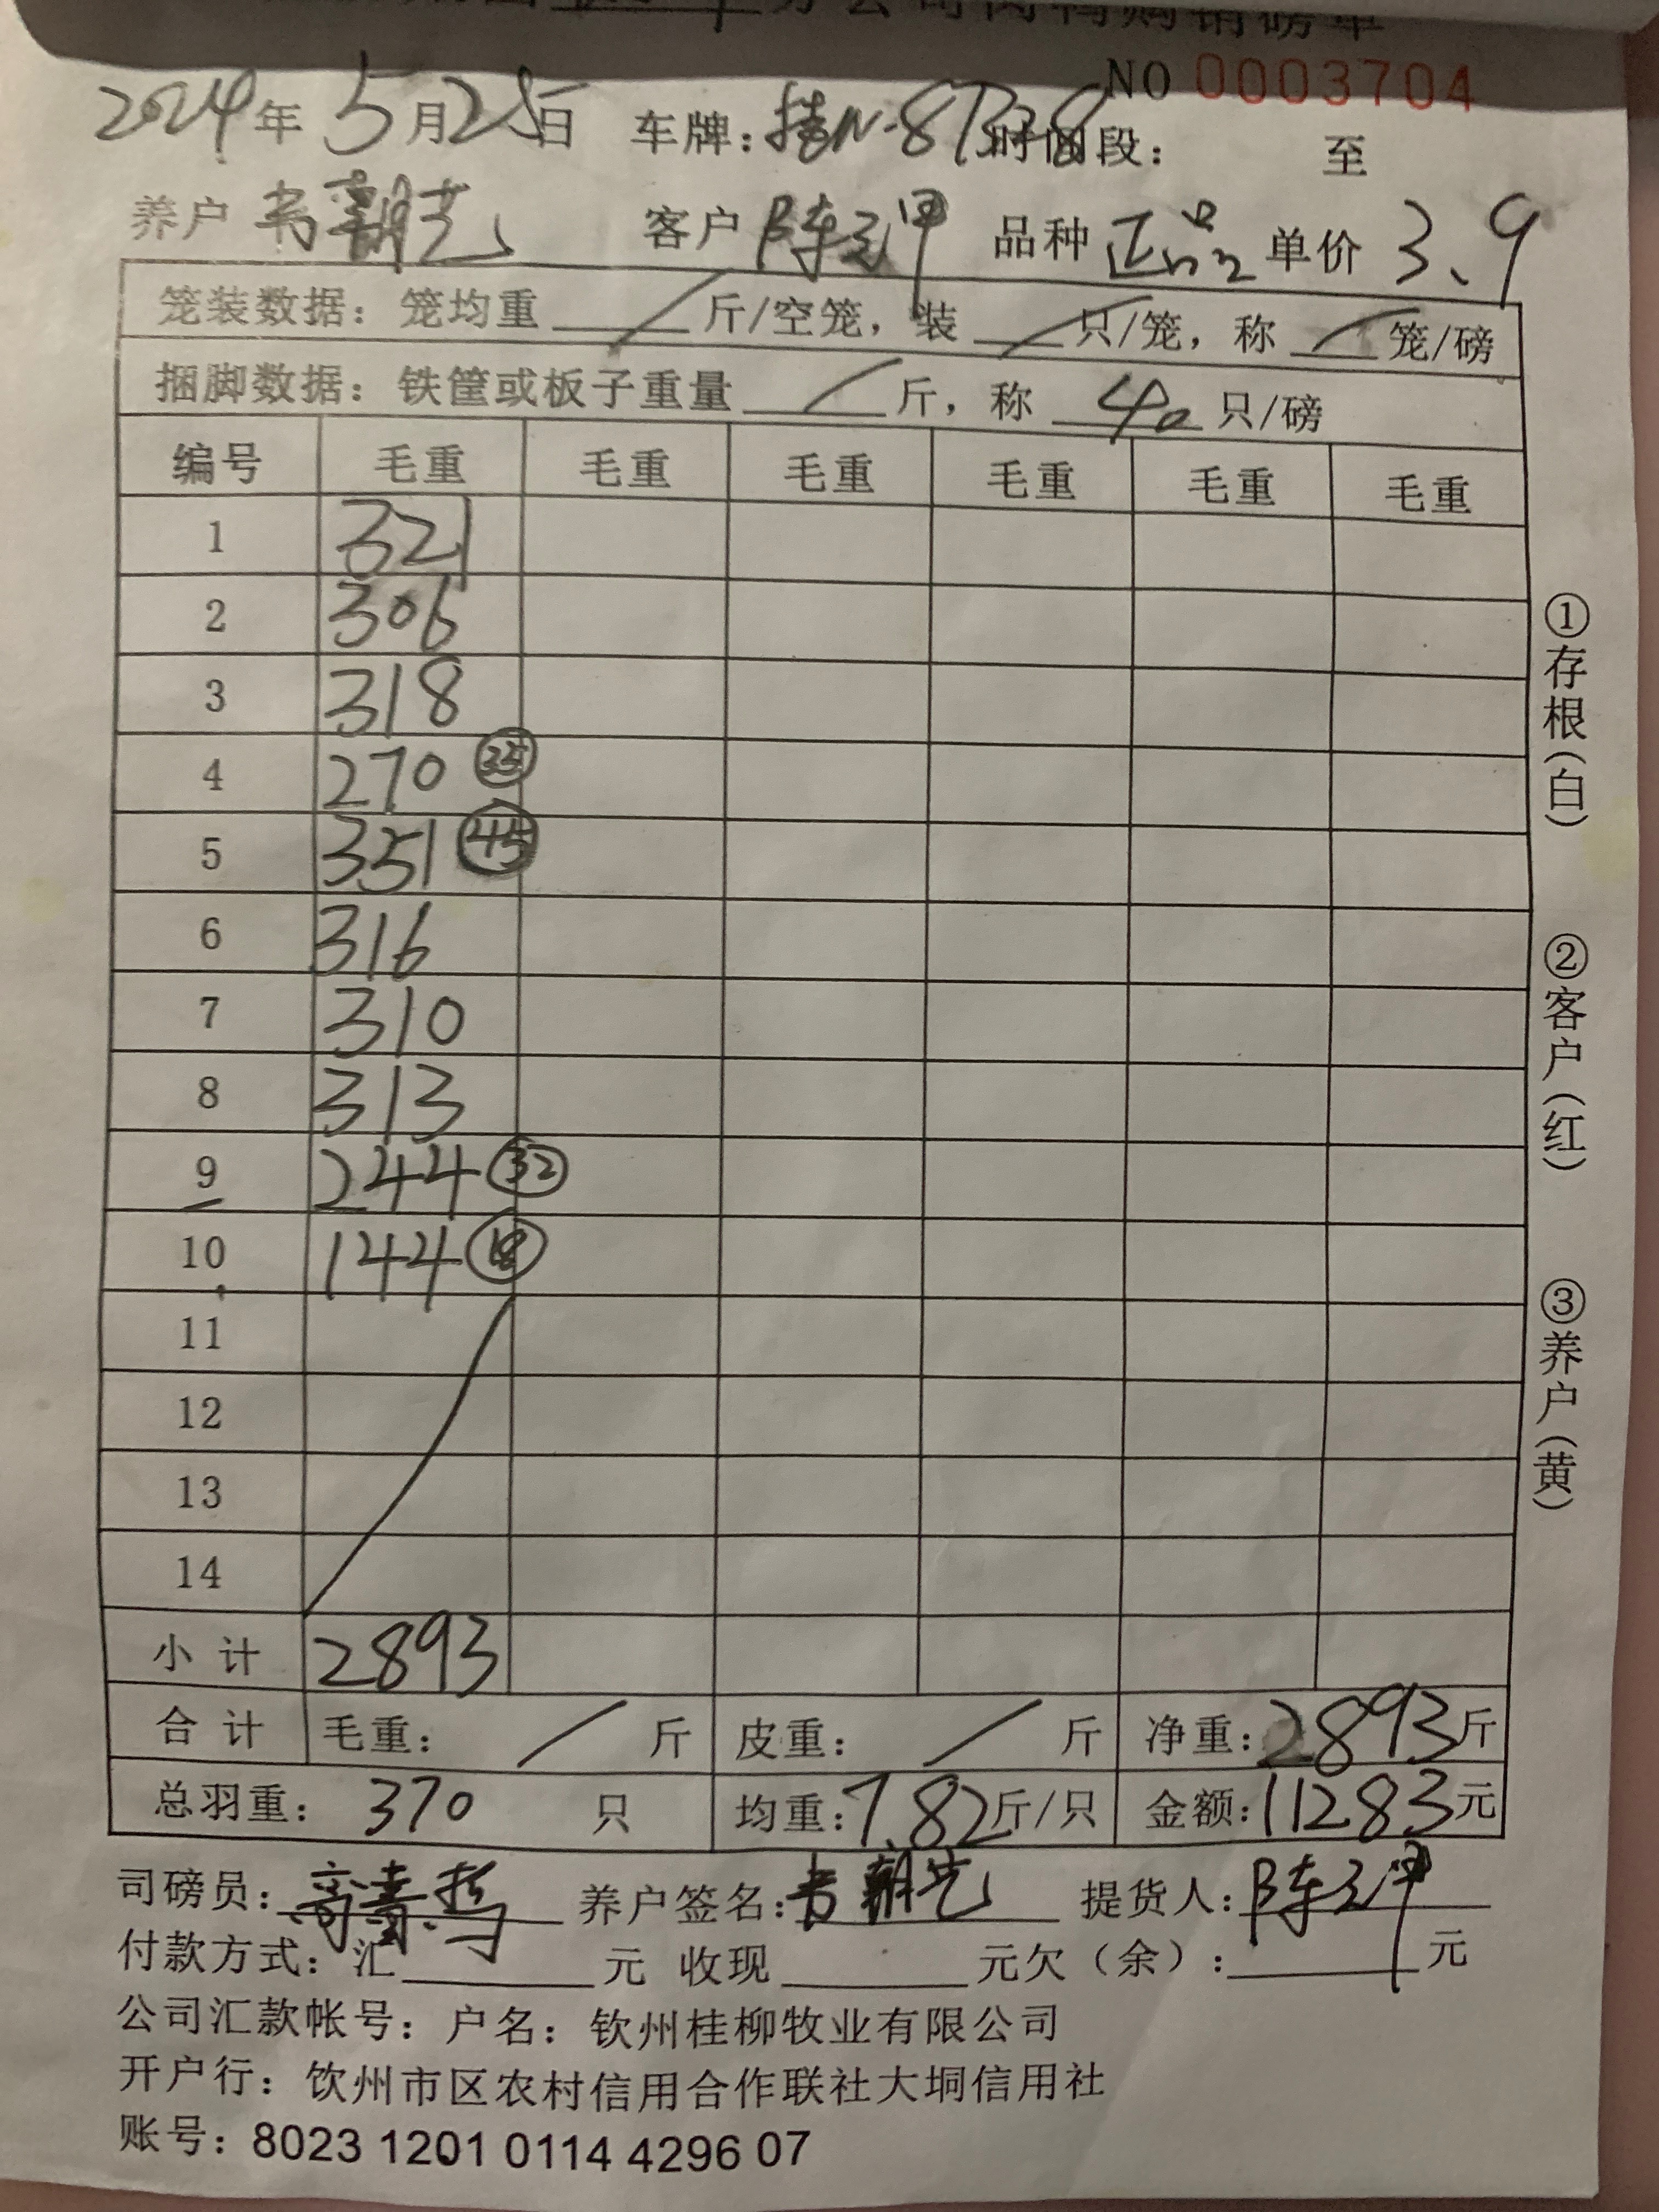 分公司肉鸭购销磅单
NO 0003704
2024年5月25日 车牌: 桂N·87328 时间段: 至
养户 韦朝艺 客户 陈玉甲 品种 正品 单价 3.9
笼装数据: 笼均重 / 斤/空笼, 装 / 只/笼, 称 / 笼/磅
捆脚数据: 铁筐或板子重量 / 斤, 称 40 只/磅
编号 毛重 毛重 毛重 毛重 毛重 毛重
1 321
2 306
3 318
4 270 35
5 351 45
6 316
7 310
8 313
9 244 32
10 144 18
11
12
13
14
小计 2893
合计 毛重: / 斤 皮重: / 斤 净重: 2893斤
总羽重: 370 只 均重: 7.82斤/只 金额: 11283元
司磅员: 养户签名: 韦朝艺 提货人: 陈玉甲
付款方式: 汇 元 收现 元欠(余): 元
公司汇款帐号: 户名: 钦州桂柳牧业有限公司
开户行: 钦州市区农村信用合作联社大垌信用社
账号: 8023 1201 0114 4296 07
①存根(白)
②客户(红)
③养户(黄)